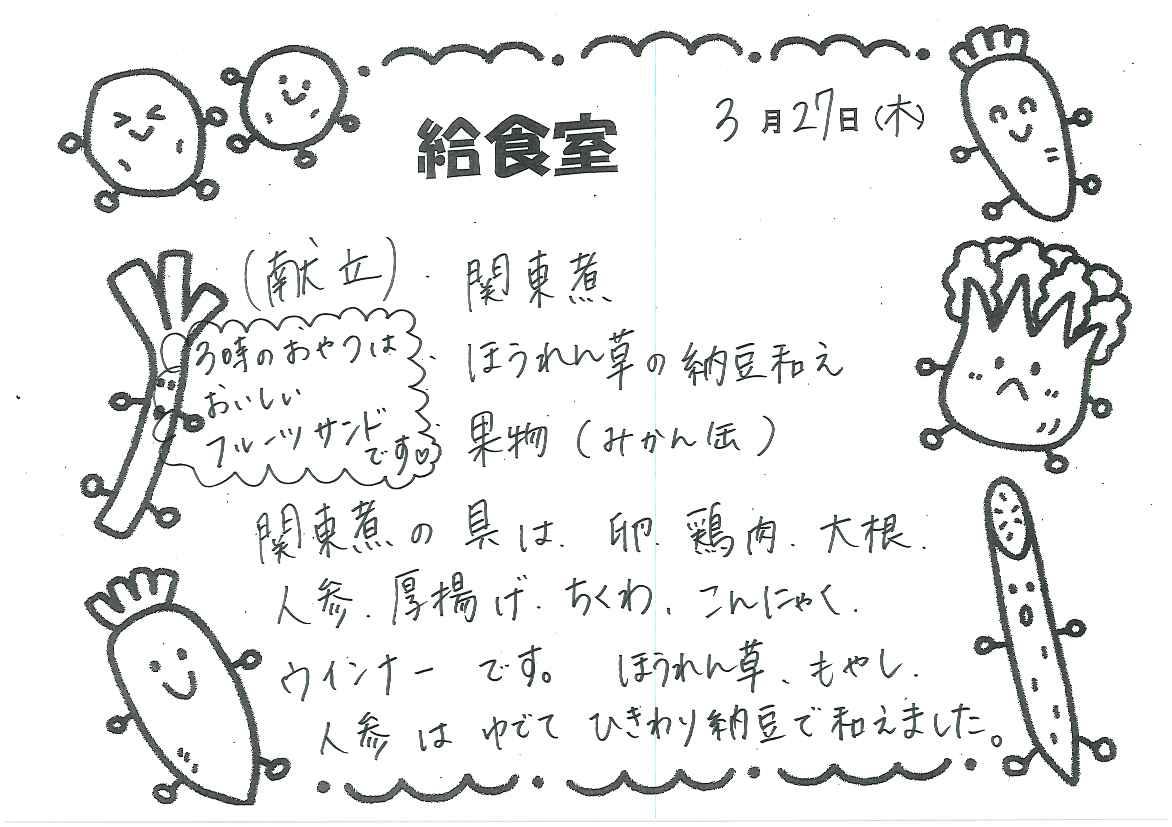 給食室
3月27日(木)
(献立)・関東煮
・ほうれん草の納豆和え
・果物(みかん缶)
3時のおやつは
おいしい
フルーツサンド
です♡
関東煮の具は、卵、鶏肉、大根、
人参、厚揚げ、ちくわ、こんにゃく、
ウインナーです。ほうれん草、もやし、
人参はゆでてひきわり納豆で和えました。